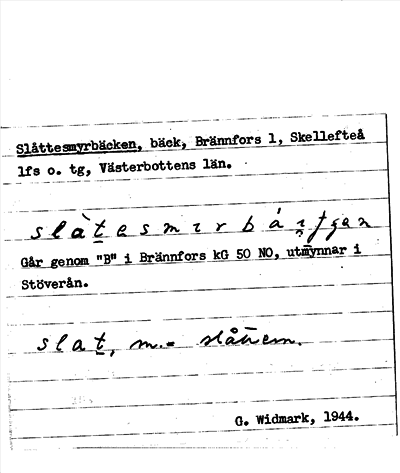 Slåttesmyrbäcken, bäck, Brännfors 1, Skellefteå
lfs o. tg, Västerbottens län.
Går genom "B" i Brännfors kG 50 NO, utmynnar i
Stöverån.
slat, m. =
G. Widmark, 1944.